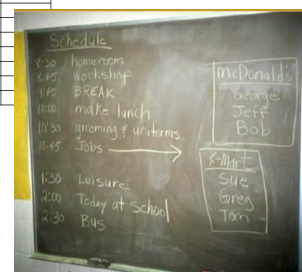 Schedule
8:30 homeroom
8:45 workshop
9:45 BREAK
10:00 make lunch
10:30 grooming & uniforms
10:45 Jobs
1:30 Leisure
2:00 Today at school
2:30 Bus
McDonalds
George
Jeff
Bob
K-Mart
Sue
Greg
Tom